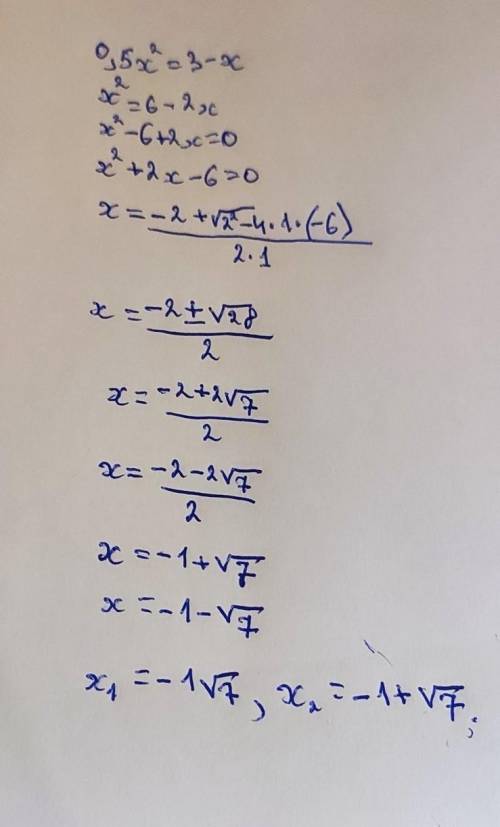 0,5x² = 3 - x
x² = 6 - 2x
x² - 6 + 2x = 0
x² + 2x - 6 = 0
x = (-2 + √2² - 4 · 1 · (-6)) / (2 · 1)
x = (-2 ± √28) / 2
x = (-2 + 2√7) / 2
x = (-2 - 2√7) / 2
x = -1 + √7
x = -1 - √7
x₁ = -1√7, x₂ = -1 + √7;